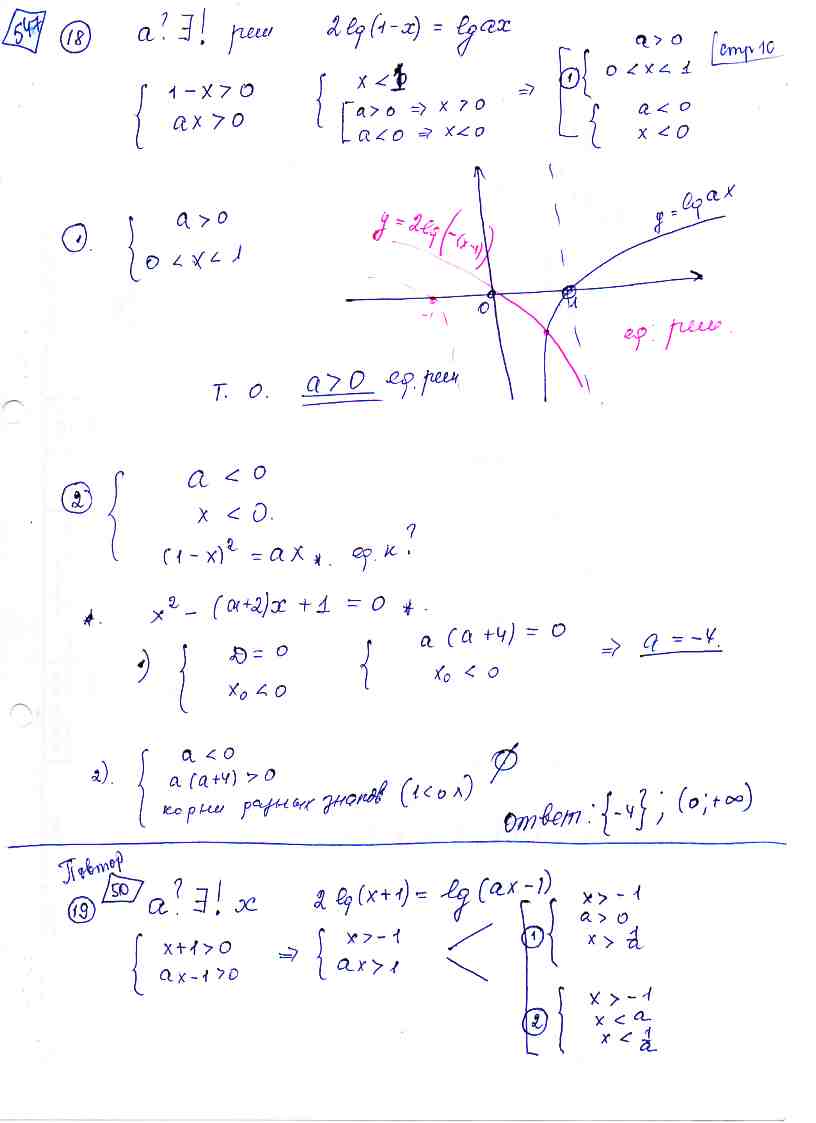 547
18 a? ∃! реш 2lg(1-x) = lg ax
{ 1-x>0
ax>0
{ x<1
[ a>0 ⇒ x>0
a<0 ⇒ x<0
⇒ [ 1 { a>0
0<x<1
{ a<0
x<0
[стр 10
1. { a>0
0<x<1
y=2lg(-(x-1))
y=lg ax
-1
0
1
ед. реш.
т. о. a>0 ед. реш
2 { a<0
x<0.
(1-x)² = ax *. ед. к?
*. x² - (a+2)x + 1 = 0 *.
1) { D=0
x₀<0
{ a(a+4)=0
x₀<0
⇒ a=-4.
2). { a<0
a(a+4)>0
корни разных знаков (1<0 л) ∅
ответ: {-4}; (0;+∞)
Повтор
50
19 a? ∃! x 2lg(x+1) = lg(ax-1)
{ x+1>0
ax-1>0
⇒ { x>-1
ax>1
[ 1 { x>-1
a>0
x>1/a
2 { x>-1
x<a
x<1/a